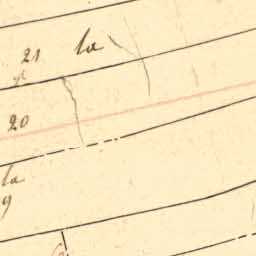 21 la
20
la
9